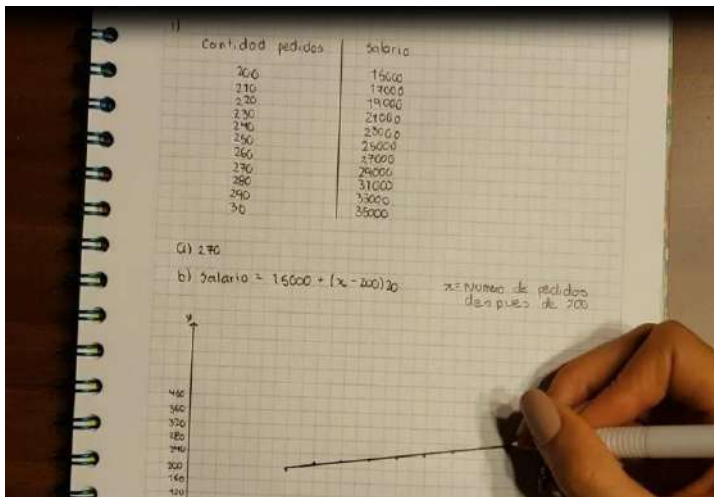 1)
Cantidad pedidos Salario
200 15000
210 17000
220 19000
230 21000
240 23000
250 25000
260 27000
270 29000
280 31000
290 33000
30 35000
a) 270
b) Salario = 15000 + (x - 200)20 x= Numero de pedidos
despues de 200
y
360
320
280
240
200
160
120